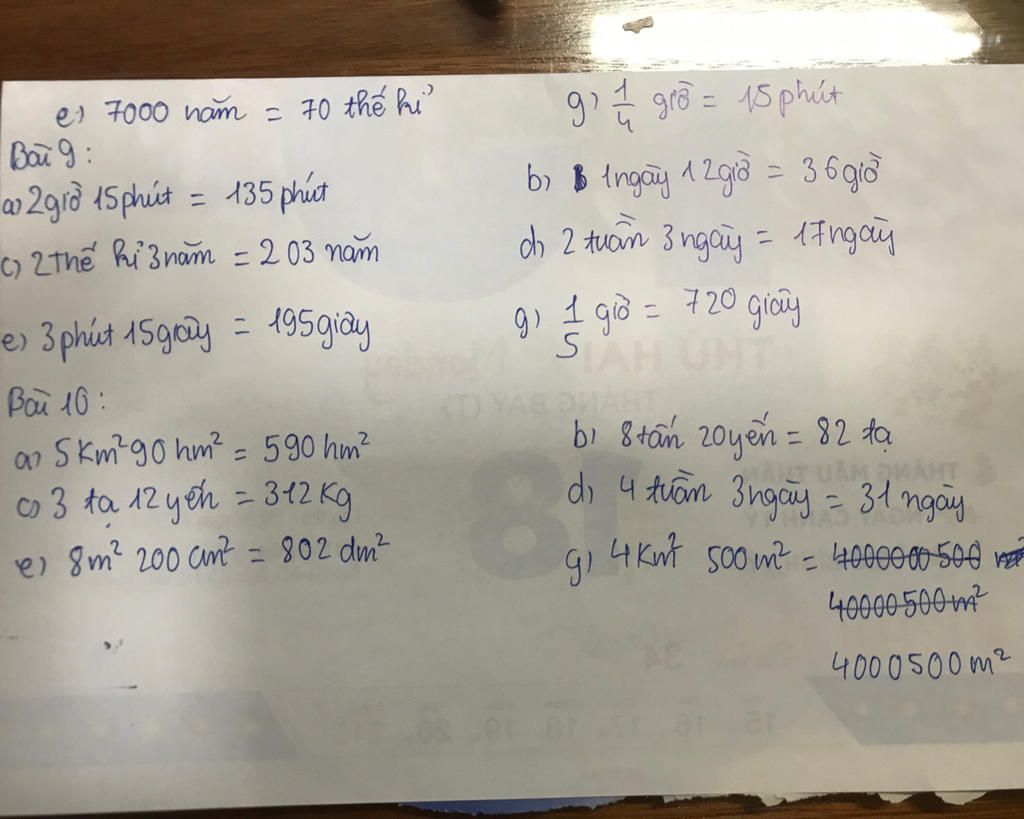 e) 7000 năm = 70 thế kỉ
g) 1/4 giờ = 15 phút
Bài 9:
a) 2 giờ 15 phút = 135 phút
b) 1 ngày 12 giờ = 36 giờ
c) 2 thế kỉ 3 năm = 203 năm
d) 2 tuần 3 ngày = 17 ngày
e) 3 phút 15 giây = 195 giây
g) 1/5 giờ = 720 giây
Bài 10:
a) 5 Km² 90 hm² = 590 hm²
b) 8 tấn 20 yến = 82 tạ
c) 3 tạ 12 yến = 312 Kg
d) 4 tuần 3 ngày = 31 ngày
e) 8 m² 200 cm² = 802 dm²
g) 4 Km² 500 m² = 4000000500 m²
40000500 m²
4000500 m²
THỨ HAI Monday
THÁNG BẢY (T)
THÁNG MẬU THÂN
NGÀY CANH TÝ
18
34
15 16 17 18 19 20 21